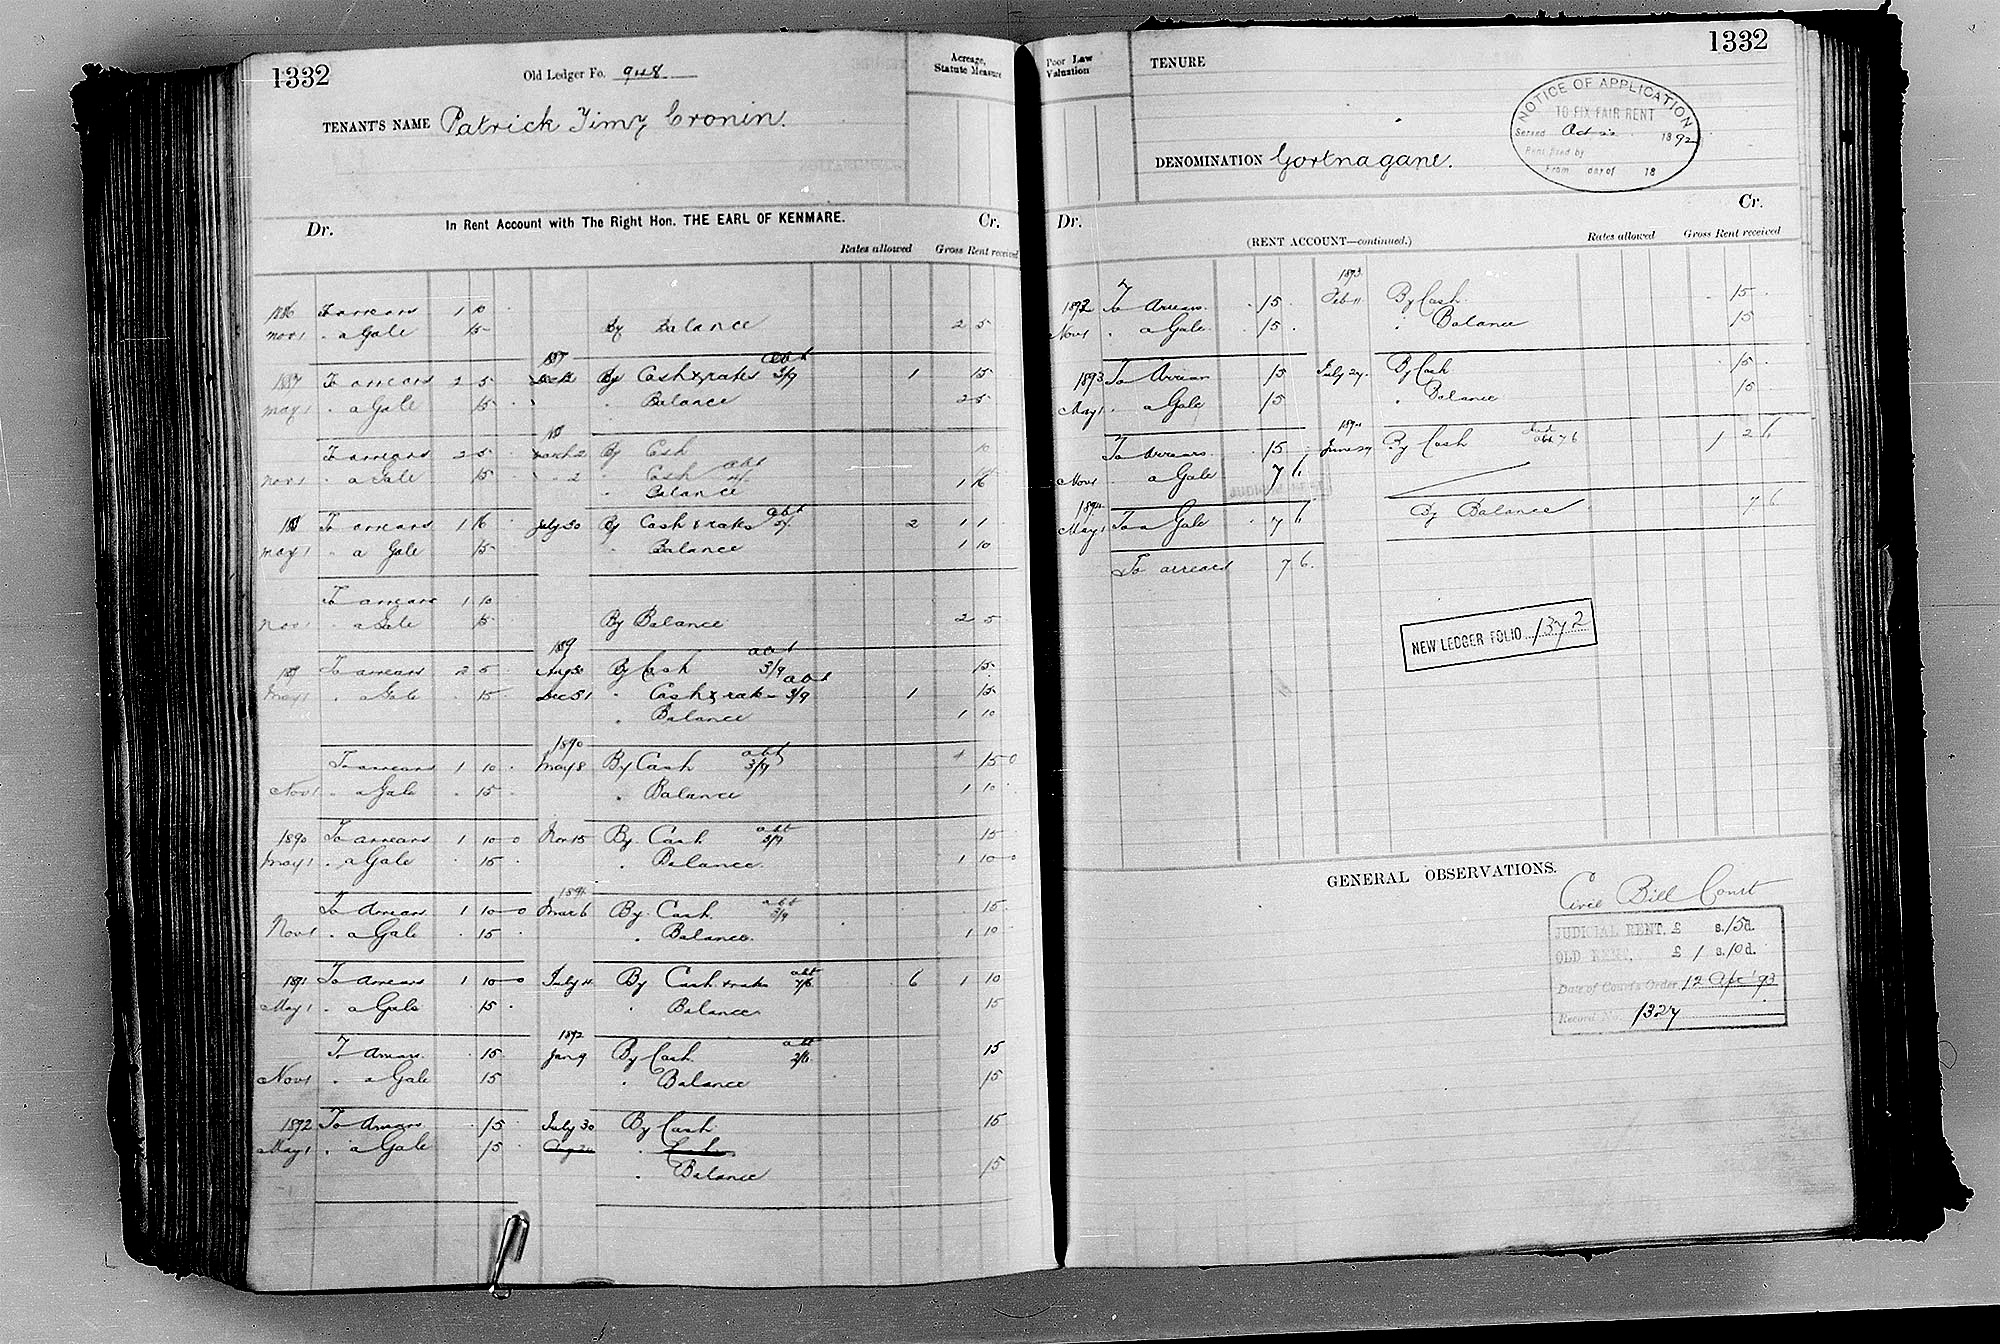 1332
Old Ledger Fo. 948
Acreage, Statute Measure
TENANT'S NAME Patrick Timy Cronin.
In Rent Account with The Right Hon. THE EARL OF KENMARE.
Dr. Cr.
Rates allowed Gross Rent received
1886 To arrears 1 10
Nov 1 " a Gale 15 By Balance 2 5
1887 To arrears 2 5 Dec 12 By Cash & rates abt 3/9 1 15
May 1 " a Gale 15 " Balance 2 5
To arrears 2 5 March 2 By Cash 10
Nov 1 " a Gale 15 " 2 " Cash abt
" Balance 1 16
To arrears 1 16 July 30 By Cash & rates abt 2 1 1
May 1 " a Gale 15 " Balance 1 10
To arrears 1 10
Nov 1 " a Gale 15 By Balance 2 5
1889
To arrears 2 5 Aug 30 By Cash abt 3/9 15
May 1 " a Gale 15 Dec 31 " Cash & rates abt 3/9 1 15
" Balance 1 10
1890
To arrears 1 10 May 8 By Cash abt 3/9 15 0
Nov 1 " a Gale 15 " Balance 1 10
1890 To arrears 1 10 0 Nov 15 By Cash abt 3/9 15
May 1 " a Gale 15 " Balance 1 10 0
1891
To Arrears 1 10 0 Mar 6 By Cash abt 3/9 15
Nov 1 " a Gale 15 " Balance 1 10
1891 To Arrears 1 10 0 July 4 By Cash & rates abt 7/6 6 1 10
May 1 " a Gale 15 " Balance 15
1892
To Arrears 15 Jan 9 By Cash abt 15
Nov 1 " a Gale 15 " Balance 15
1892 To Arrears 15 July 30 By Cash 15
May 1 " a Gale 15
" Balance 15
1332
Poor Law Valuation
TENURE
NOTICE OF APPLICATION
TO FIX FAIR RENT
Served Oct 1892
Rent fixed by
From day of 18
DENOMINATION Gortnagane.
Dr. Cr.
(RENT ACCOUNT—continued.)
Rates allowed Gross Rent received
1893
1892 To Arrears 15 Feb 11 By Cash 15
Nov 1 " a Gale 15 " Balance 15
1893 To Arrears 15 July 27 By Cash 15
May 1 " a Gale 15 " Balance 15
1894
To Arrears 15 June 29 By Cash 7 6 1 2 6
Nov 1 " a Gale 7 6
1894
May 1 To a Gale 7 6 By Balance 7 6
To arrears 7 6
NEW LEDGER FOLIO 1372
GENERAL OBSERVATIONS.
Civil Bill Court
JUDICIAL RENT, £ s. 15 d.
OLD RENT, £ 1 s. 10 d.
Date of Court's Order 12 Apr '93
Record No. 1327